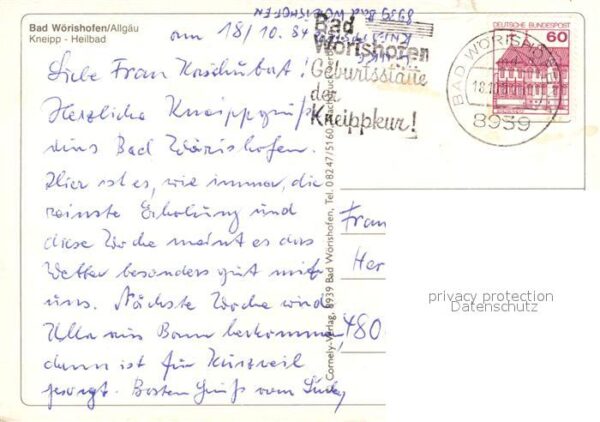 Bad Wörishofen/Allgäu
Kneipp - Heilbad
am 18/10.84
Liebe Frau
Herzliche Kneippgrüße
aus Bad Wörishofen.
Hier ist es, wie immer, die
reinste Erholung und
diese Woche meint es das
Wetter besonders gut mit
uns. Nächste Woche wird
Ulla aus Bonn herkommen,
dann ist für Kurzweil
gesorgt. Besten Gruß vom
8939 Bad WÖRISHOFEN
Bad
Wörishofen
Geburtsstätte
der
Kneippkur!
DEUTSCHE BUNDESPOST
60
BAD WÖRISHOFEN
18.10
8939
Cornely-Verlag, 8939 Bad Wörishofen, Tel. 08247/5160
Frau
Her
480
privacy protection
Datenschutz